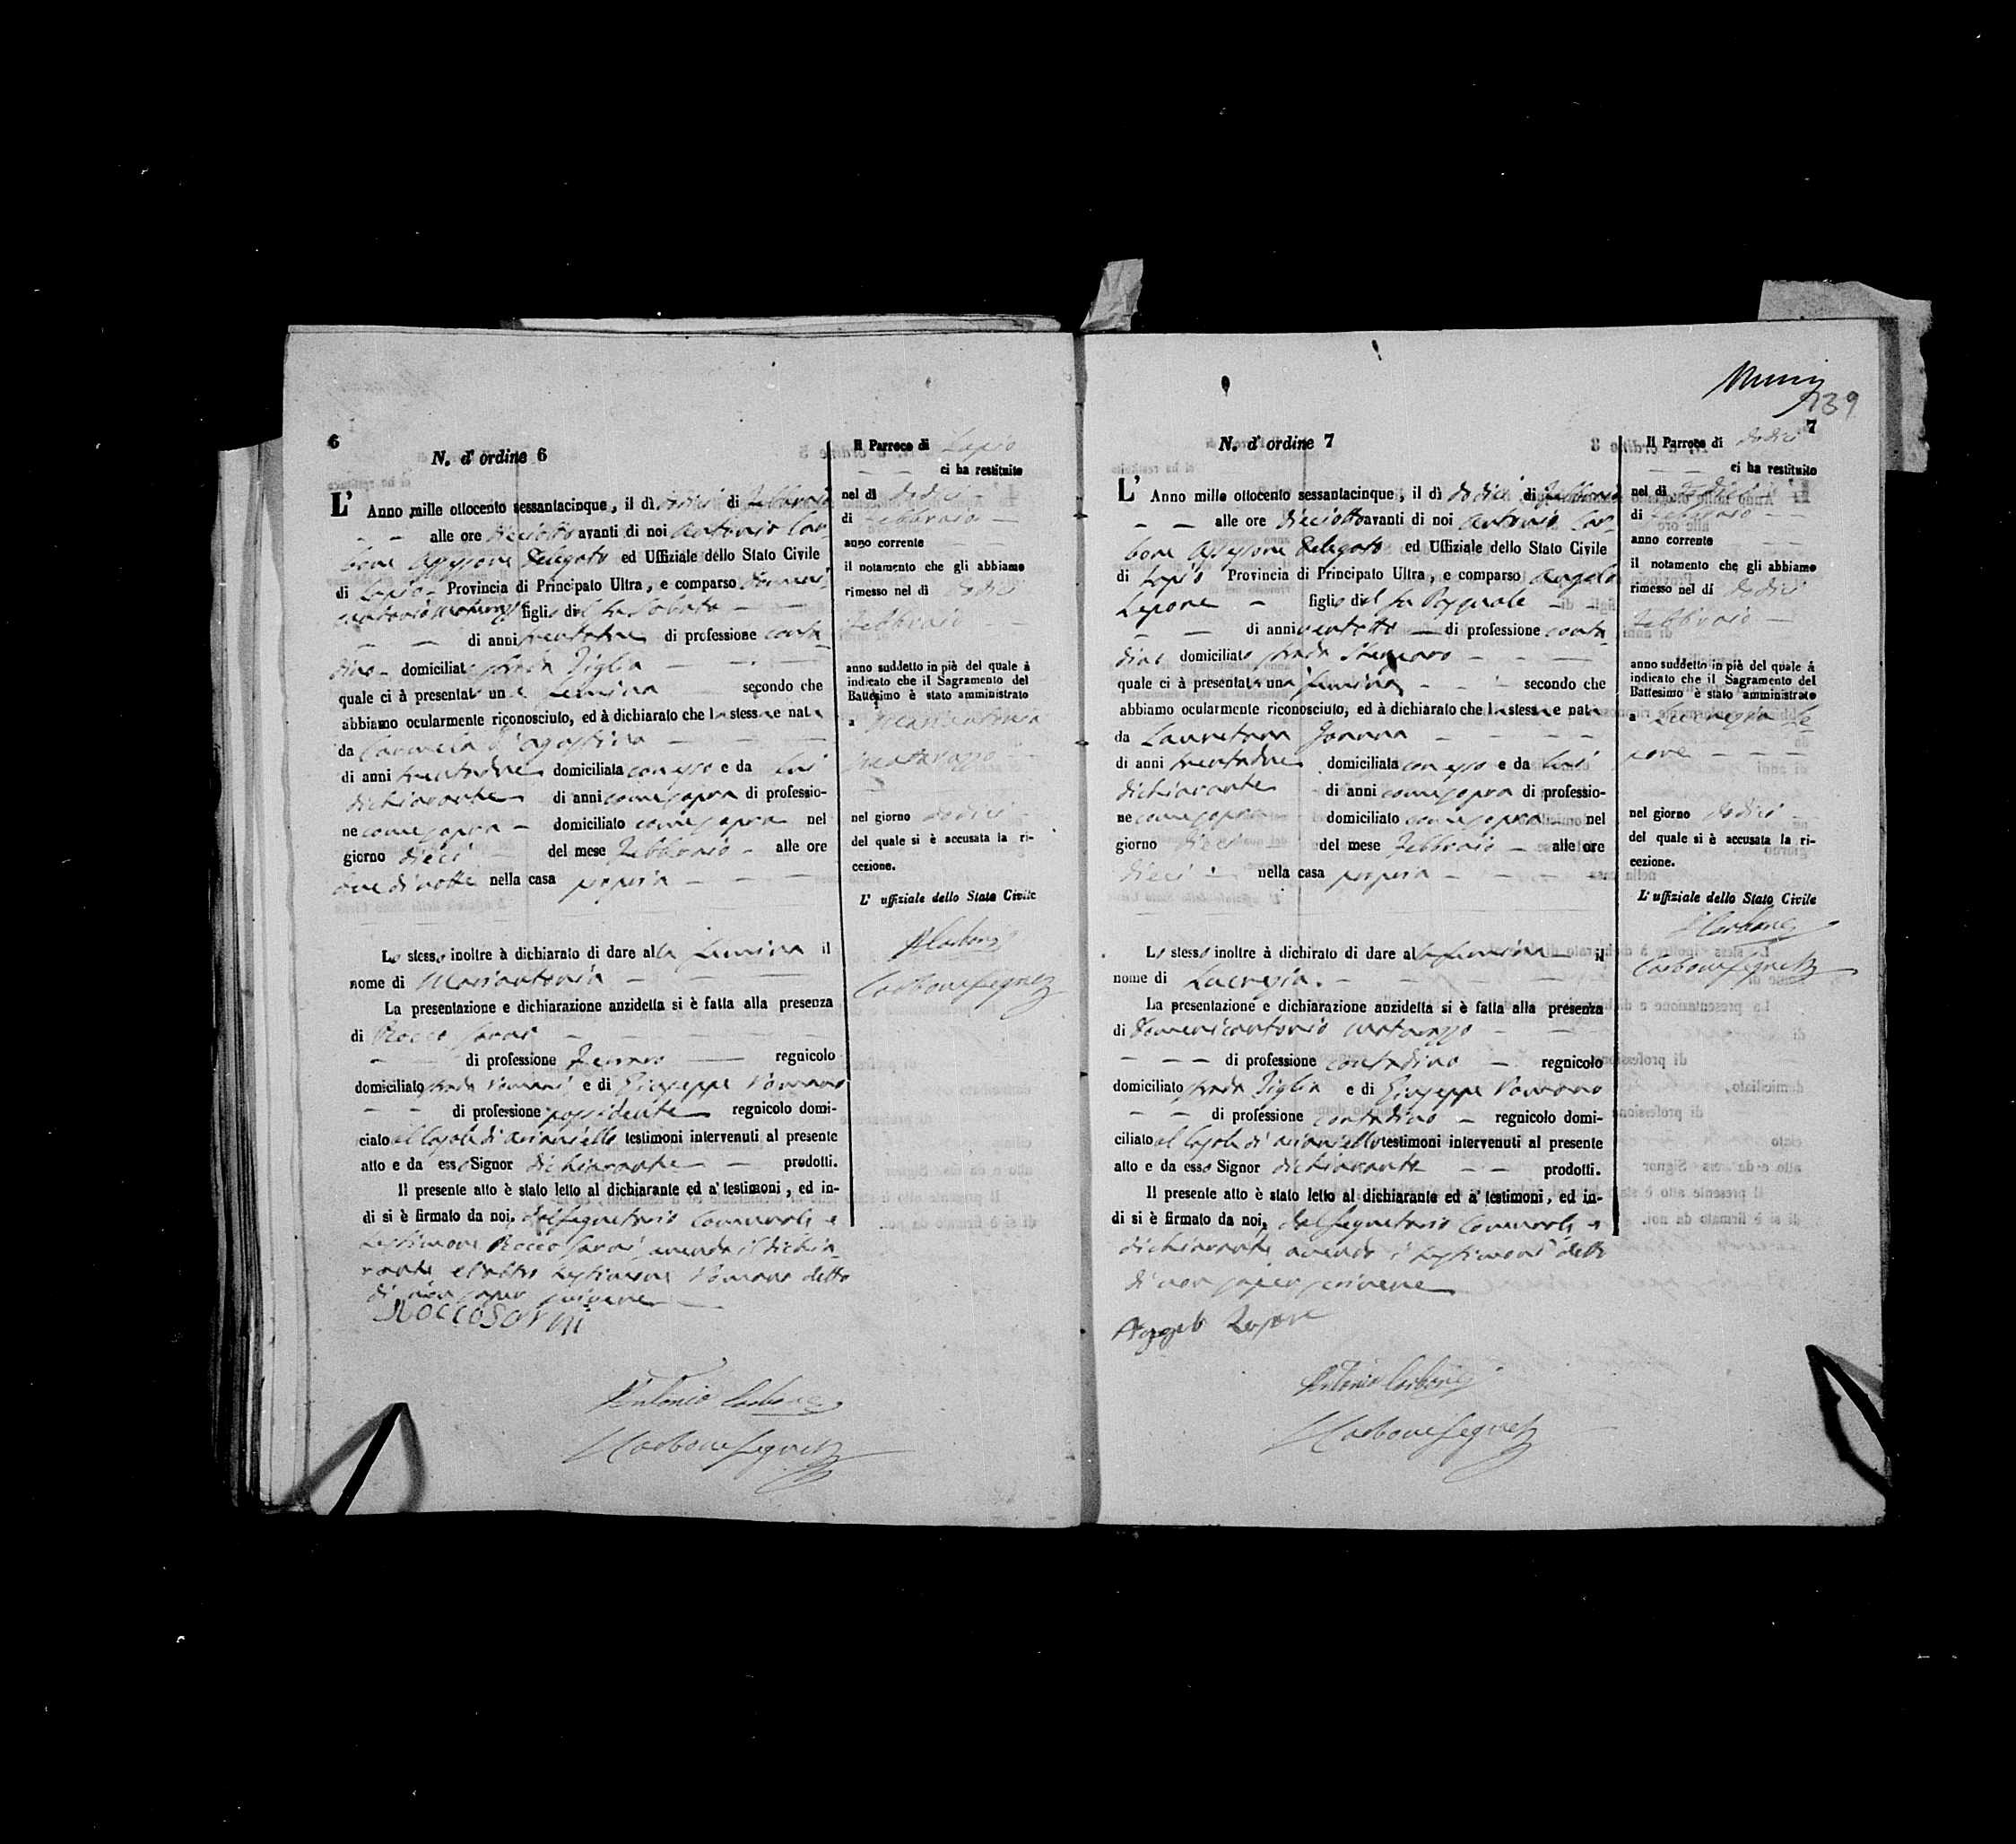 6
N. d' ordine 6
L' Anno mille ottocento sessantacinque, il dì dodici di Febbraio
alle ore dieciotto avanti di noi Antonio Car-
bone Assessore Delegato ed Uffiziale dello Stato Civile
di Lapio Provincia di Principato Ultra, e comparso Domeni-
figlio del fu Sabato
di anni trentatre di professione conta
dino domiciliato strada Tiglia
quale ci à presentato una femina secondo che
abbiamo ocularmente riconosciuto, ed à dichiarato che la stessa e nata
da Carmela d'Agostino
di anni trentadue domiciliata con esso e da lui
dichiarante di anni come sopra di professio-
ne come sopra domiciliato come sopra nel
giorno dieci del mese Febbraio alle ore
due di notte nella casa propria
Lo stesso inoltre à dichiarato di dare alla femina il
nome di Mariantonia
La presentazione e dichiarazione anzidetta si è fatta alla presenza
di Rocco
di professione regnicolo
domiciliato strada Romani e di Giuseppe Romano
di professione possidente regnicolo domi-
ciato al Casale di testimoni intervenuti al presente
atto e da esso Signor dichiarante prodotti.
Il presente atto è stato letto al dichiarante ed a' testimoni, ed in-
di si è firmato da noi, dal Segretario Comunale e
testimone Rocco avendo il dichia-
rante e l'altro testimone Romano detto
di non saper scrivere
Antonio Carbone
Carbone Segret
Il Parroco di Lapio
ci ha restituito
nel dì dodici
di Febbraio
anno corrente
il notamento che gli abbiamo
rimesso nel dì dodici
Febbraio
anno suddetto in piè del quale á
indicato che il Sagramento del
Battesimo è stato amministrato
a Mariantonia
nel giorno dodici
del quale si è accusata la ri-
cezione.
L' uffiziale dello Stato Civile
A Carbone
Carbone Segret
139
7
N. d' ordine 7
L' Anno mille ottocento sessantacinque, il dì dodici di Febbraio
alle ore dieciotto avanti di noi Antonio Car-
bone Assessore Delegato ed Uffiziale dello Stato Civile
di Lapio Provincia di Principato Ultra, e comparso Angelo
Lepore figlio del fu Pasquale
di anni ventotto di professione conta
dino domiciliato strada
quale ci à presentata una femina secondo che
abbiamo ocularmente riconosciuto, ed à dichiarato che la stessa e nata
da Lauretana Joanna
di anni trentadue domiciliata con esso e da lui
dichiarante di anni come sopra di professio-
ne come sopra domiciliato come sopra nel
giorno dieci del mese Febbraio alle ore
dieci nella casa propria
Lo stesso inoltre à dichirato di dare alla femina il
nome di Lucrezia.
La presentazione e dichiarazione anzidetta si è fatta alla presenza
di Domenicantonio Matarazzo
di professione contadino regnicolo
domiciliato strada Tiglia e di Giuseppe Romano
di professione contadino regnicolo domi-
ciliato al Casale di testimoni intervenuti al presente
atto e da esso Signor dichiarante prodotti.
Il presente atto è stato letto al dichiarante ed a' testimoni, ed in-
di si è firmato da noi, dal Segretario Comunale e
dichiarante avendo i testimoni detto
di non saper scrivere
Angelo Lepore
Antonio Carbone
Carbone Segret
Il Parroco di dodici
ci ha restituito
nel dì dodici
di Febbraio
anno corrente
il notamento che gli abbiamo
rimesso nel dì dodici
Febbraio
anno suddetto in piè del quale á
indicato che il Sagramento del
Battesimo è stato amministrato
a Lucrezia Le-
pore
nel giorno dodici
del quale si è accusata la ri-
cezione.
L' uffiziale dello Stato Civile
A Carbone
Carbone Segret